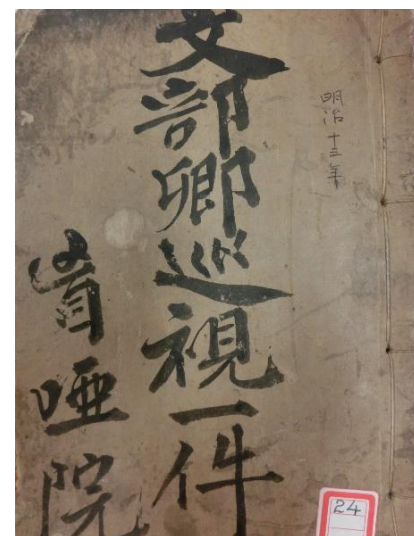 明治十三年
文部卿巡視一件
盲唖院
24